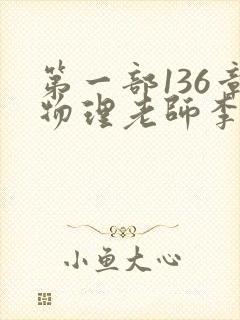 第一部136章
物理老師李
小鱼大心